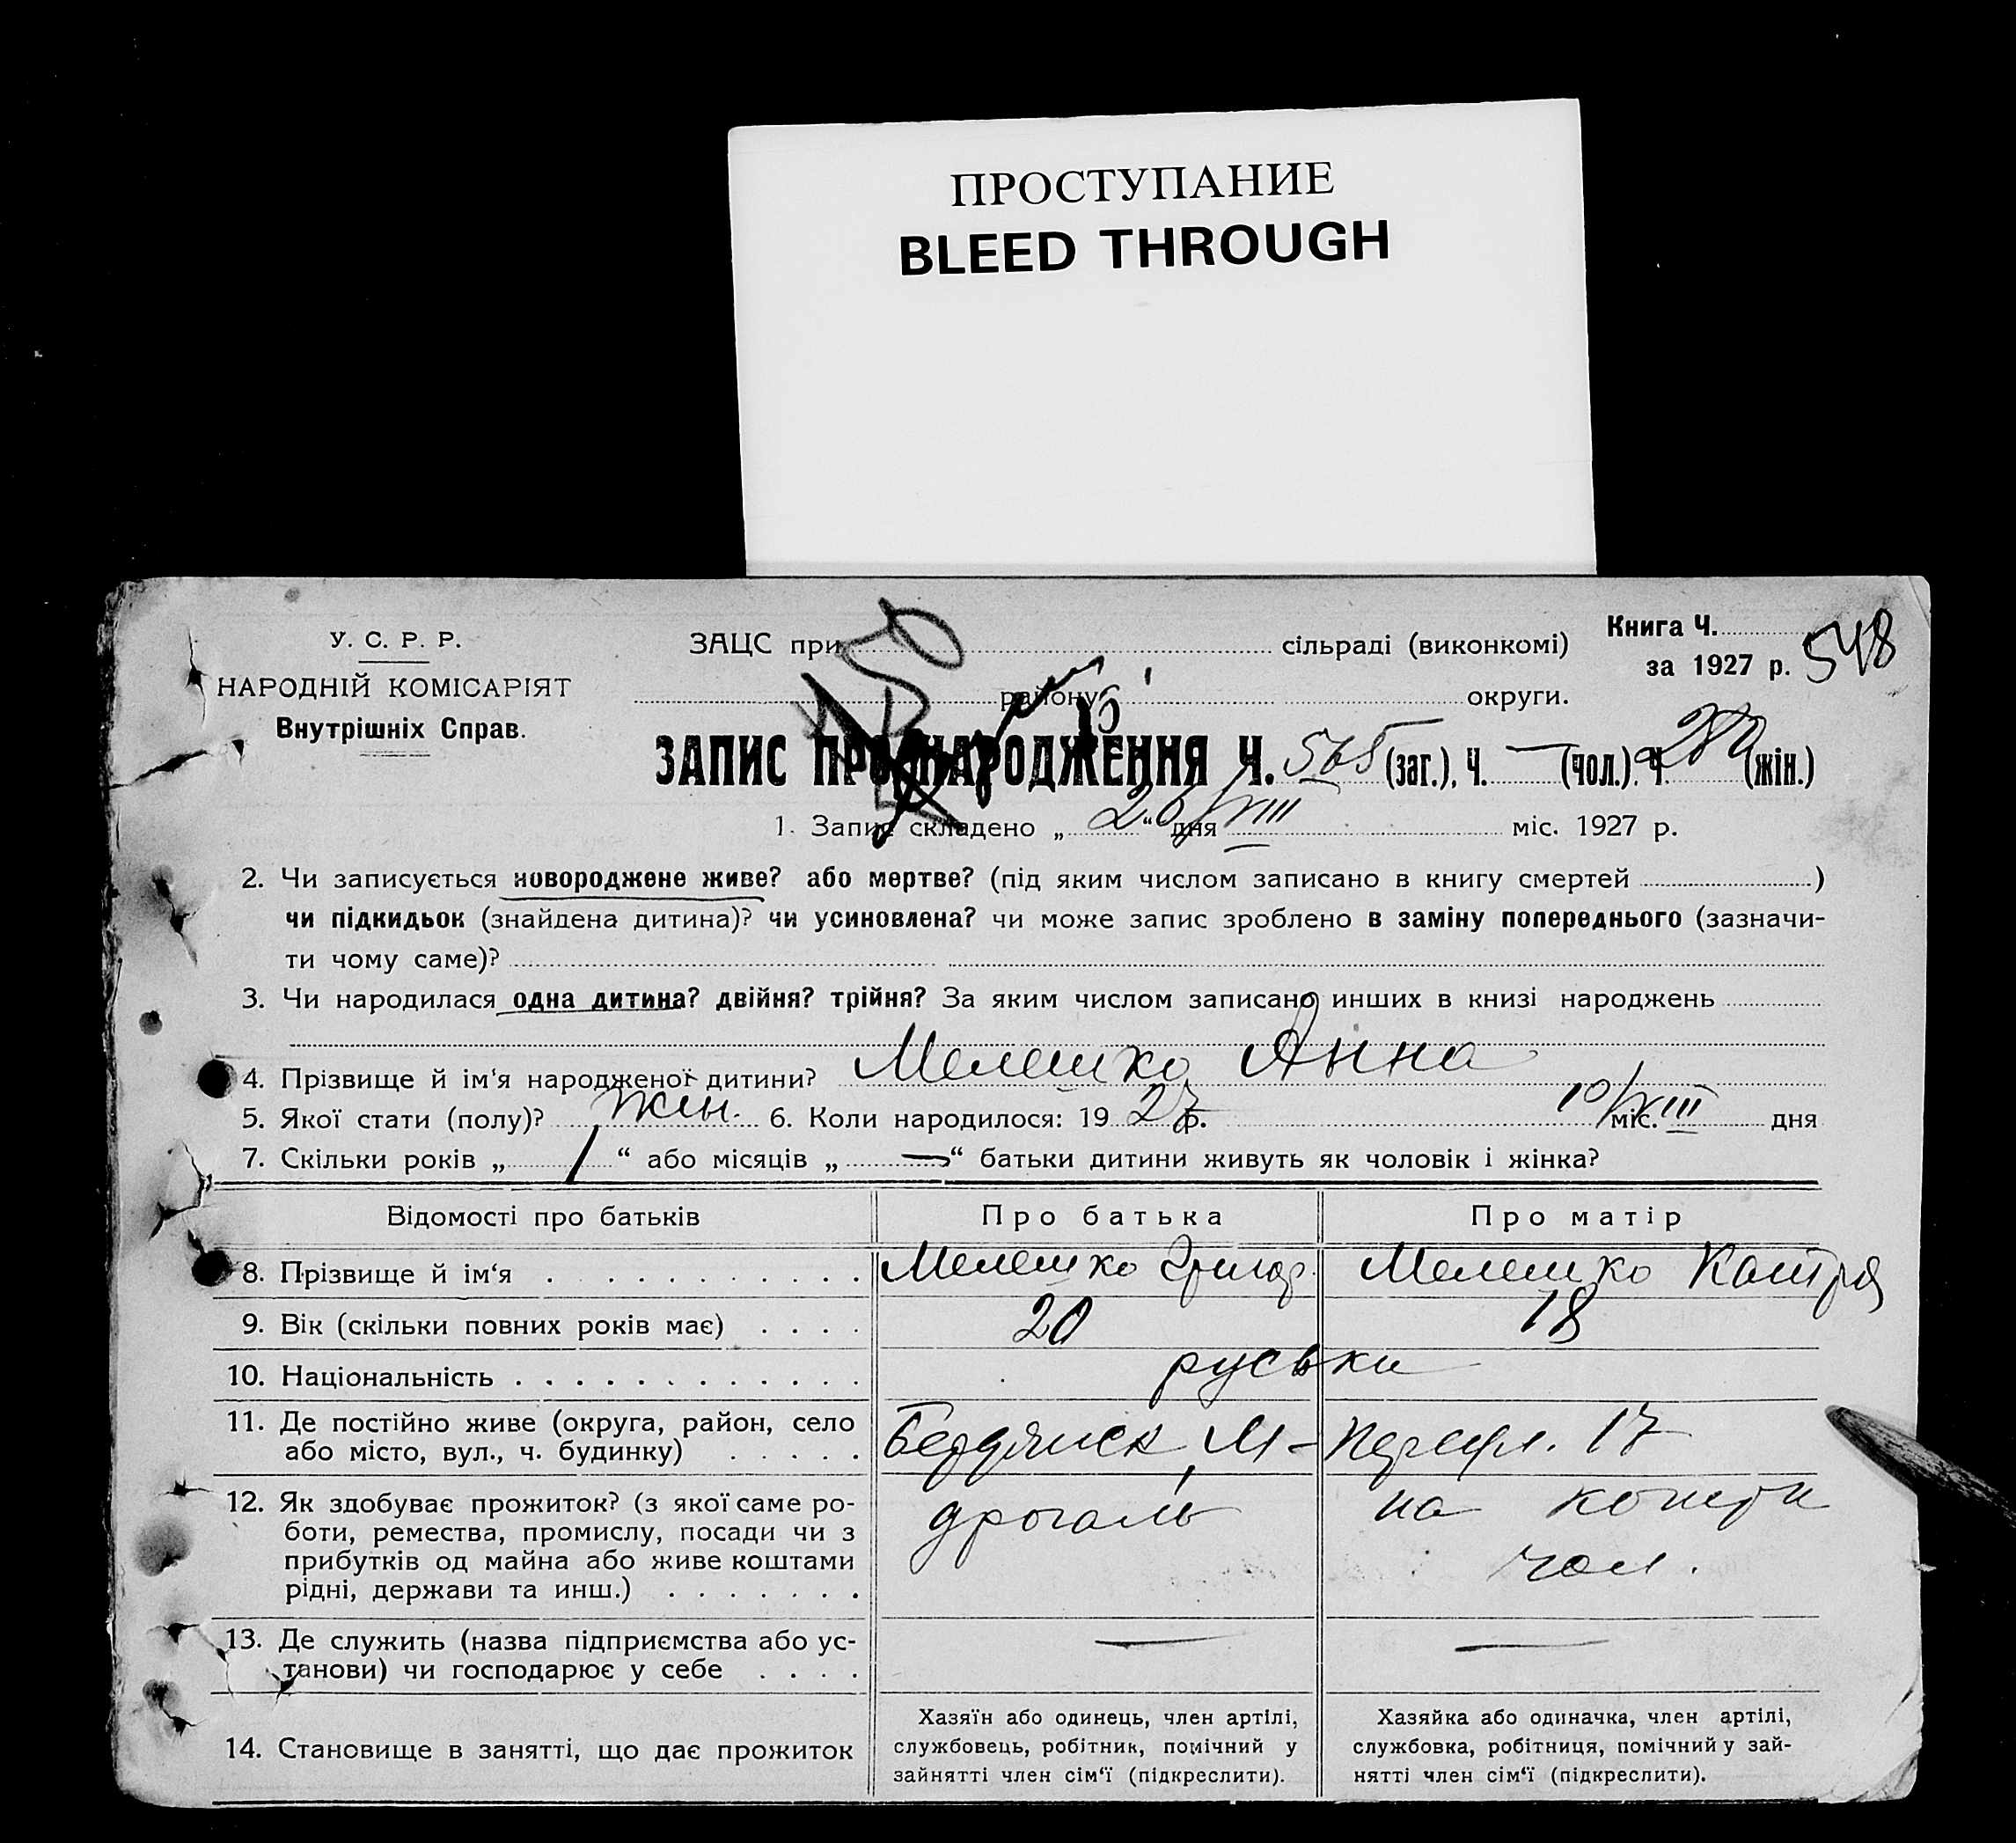 ПРОСТУПАНИЕ
BLEED THROUGH
У. С. Р. Р.
НАРОДНІЙ КОМІСАРІЯТ
Внутрішніх Справ.
ЗАЦС при сільраді (виконкомі)
району округи.
Книга Ч.
за 1927 р. 548
ЗАПИС ПРО НАРОДЖЕННЯ Ч. 565 (заг.), Ч. — (чол.), Ч. 280 (жін.)
1. Запис складено „26/VIII“ дня міс. 1927 р.
2. Чи записується новороджене живе? або мертве? (під яким числом записано в книгу смертей )
чи підкидьок (знайдена дитина)? чи усиновлена? чи може запис зроблено в заміну попереднього (зазначи-
ти чому саме)?
3. Чи народилася одна дитина? двійня? трійня? За яким числом записано инших в книзі народжень
4. Прізвище й ім‘я народженої дитини? Мелешко Анна
5. Якої стати (полу)? жін. 6. Коли народилося: 1927 р. 10/VIII міс. дня
7. Скільки років „1“ або місяців „—“ батьки дитини живуть як чоловік і жінка?
Відомості про батьків Про батька Про матір
8. Прізвище й ім‘я Мелешко Григор. Мелешко Катря
9. Вік (скільки повних років має) 20 18
10. Національність руськи
11. Де постійно живе (округа, район, село
або місто, вул., ч. будинку) Бердянск, М- 17
12. Як здобуває прожиток? (з якої саме ро-
боти, ремества, промислу, посади чи з
прибутків од майна або живе коштами
рідні, держави та инш.) дрогаль на кошти
чол.
13. Де служить (назва підприємства або ус-
танови) чи господарює у себе — —
14. Становище в занятті, що дає прожиток
Хазяїн або одинець, член артілі,
службовець, робітник, помічний у
зайнятті член сім‘ї (підкреслити).
Хазяйка або одиначка, член артілі,
службовка, робітниця, помічний у зай-
нятті член сім‘ї (підкреслити).